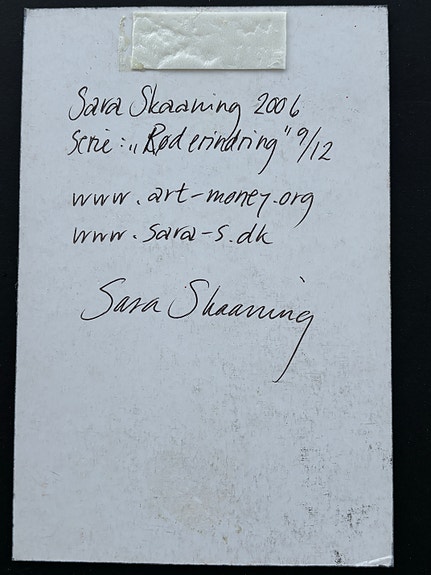 Sara Skaaning 2006
Serie: „Rød erindring" 9/12
www.art-money.org
www.sara-s.dk
Sara Skaaning